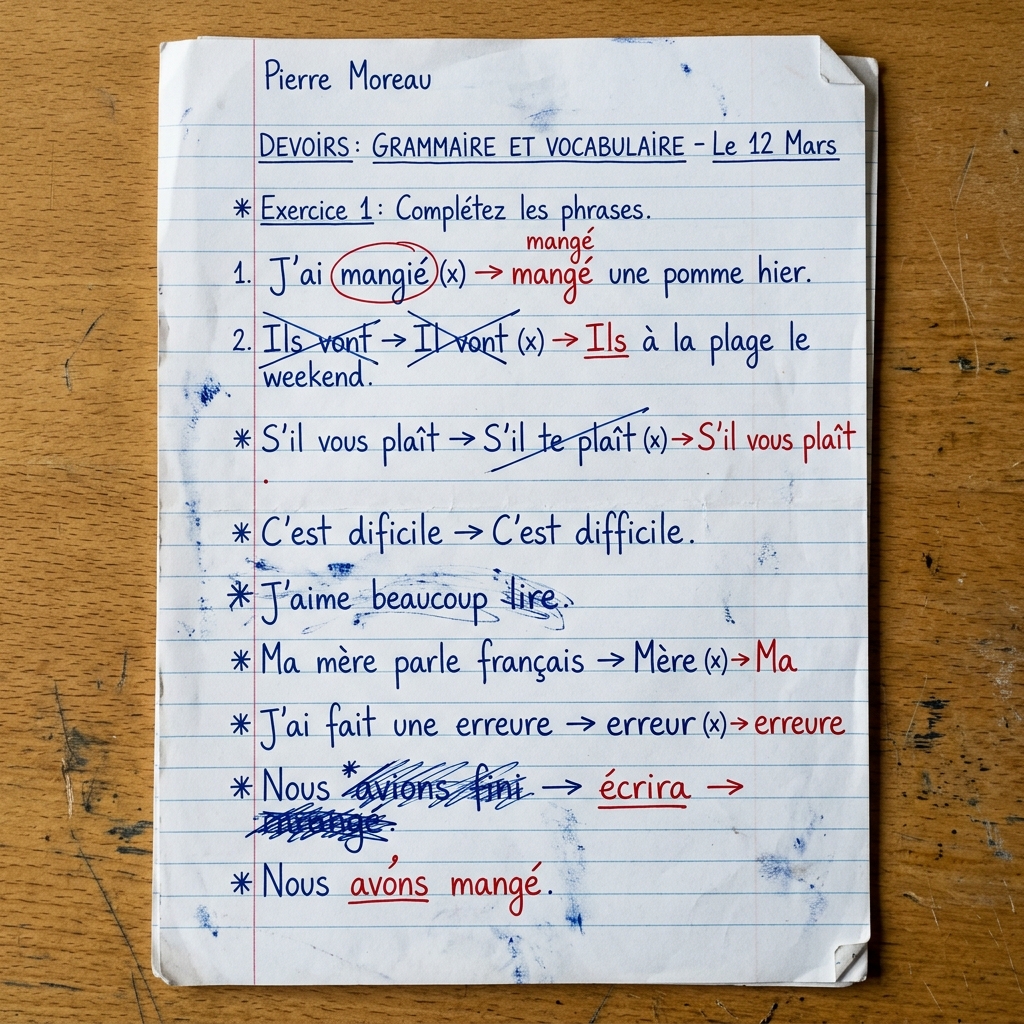 Pierre Moreau
DEVOIRS: GRAMMAIRE ET VOCABULAIRE - Le 12 Mars
* Exercice 1: Complétez les phrases.
mangé
1. J'ai mangié (x) → mangé une pomme hier.
2. Ils vont → Il vont (x) → Ils à la plage le
weekend.
* S'il vous plaît → S'il te plaît (x) → S'il vous plaît
.
* C'est dificile → C'est difficile.
* J'aime beaucoup lire.
* Ma mère parle français → Mère (x) → Ma
* J'ai fait une erreure → erreur (x) → erreure
* Nous * avions fini → écrira →
* Nous avóns mangé.